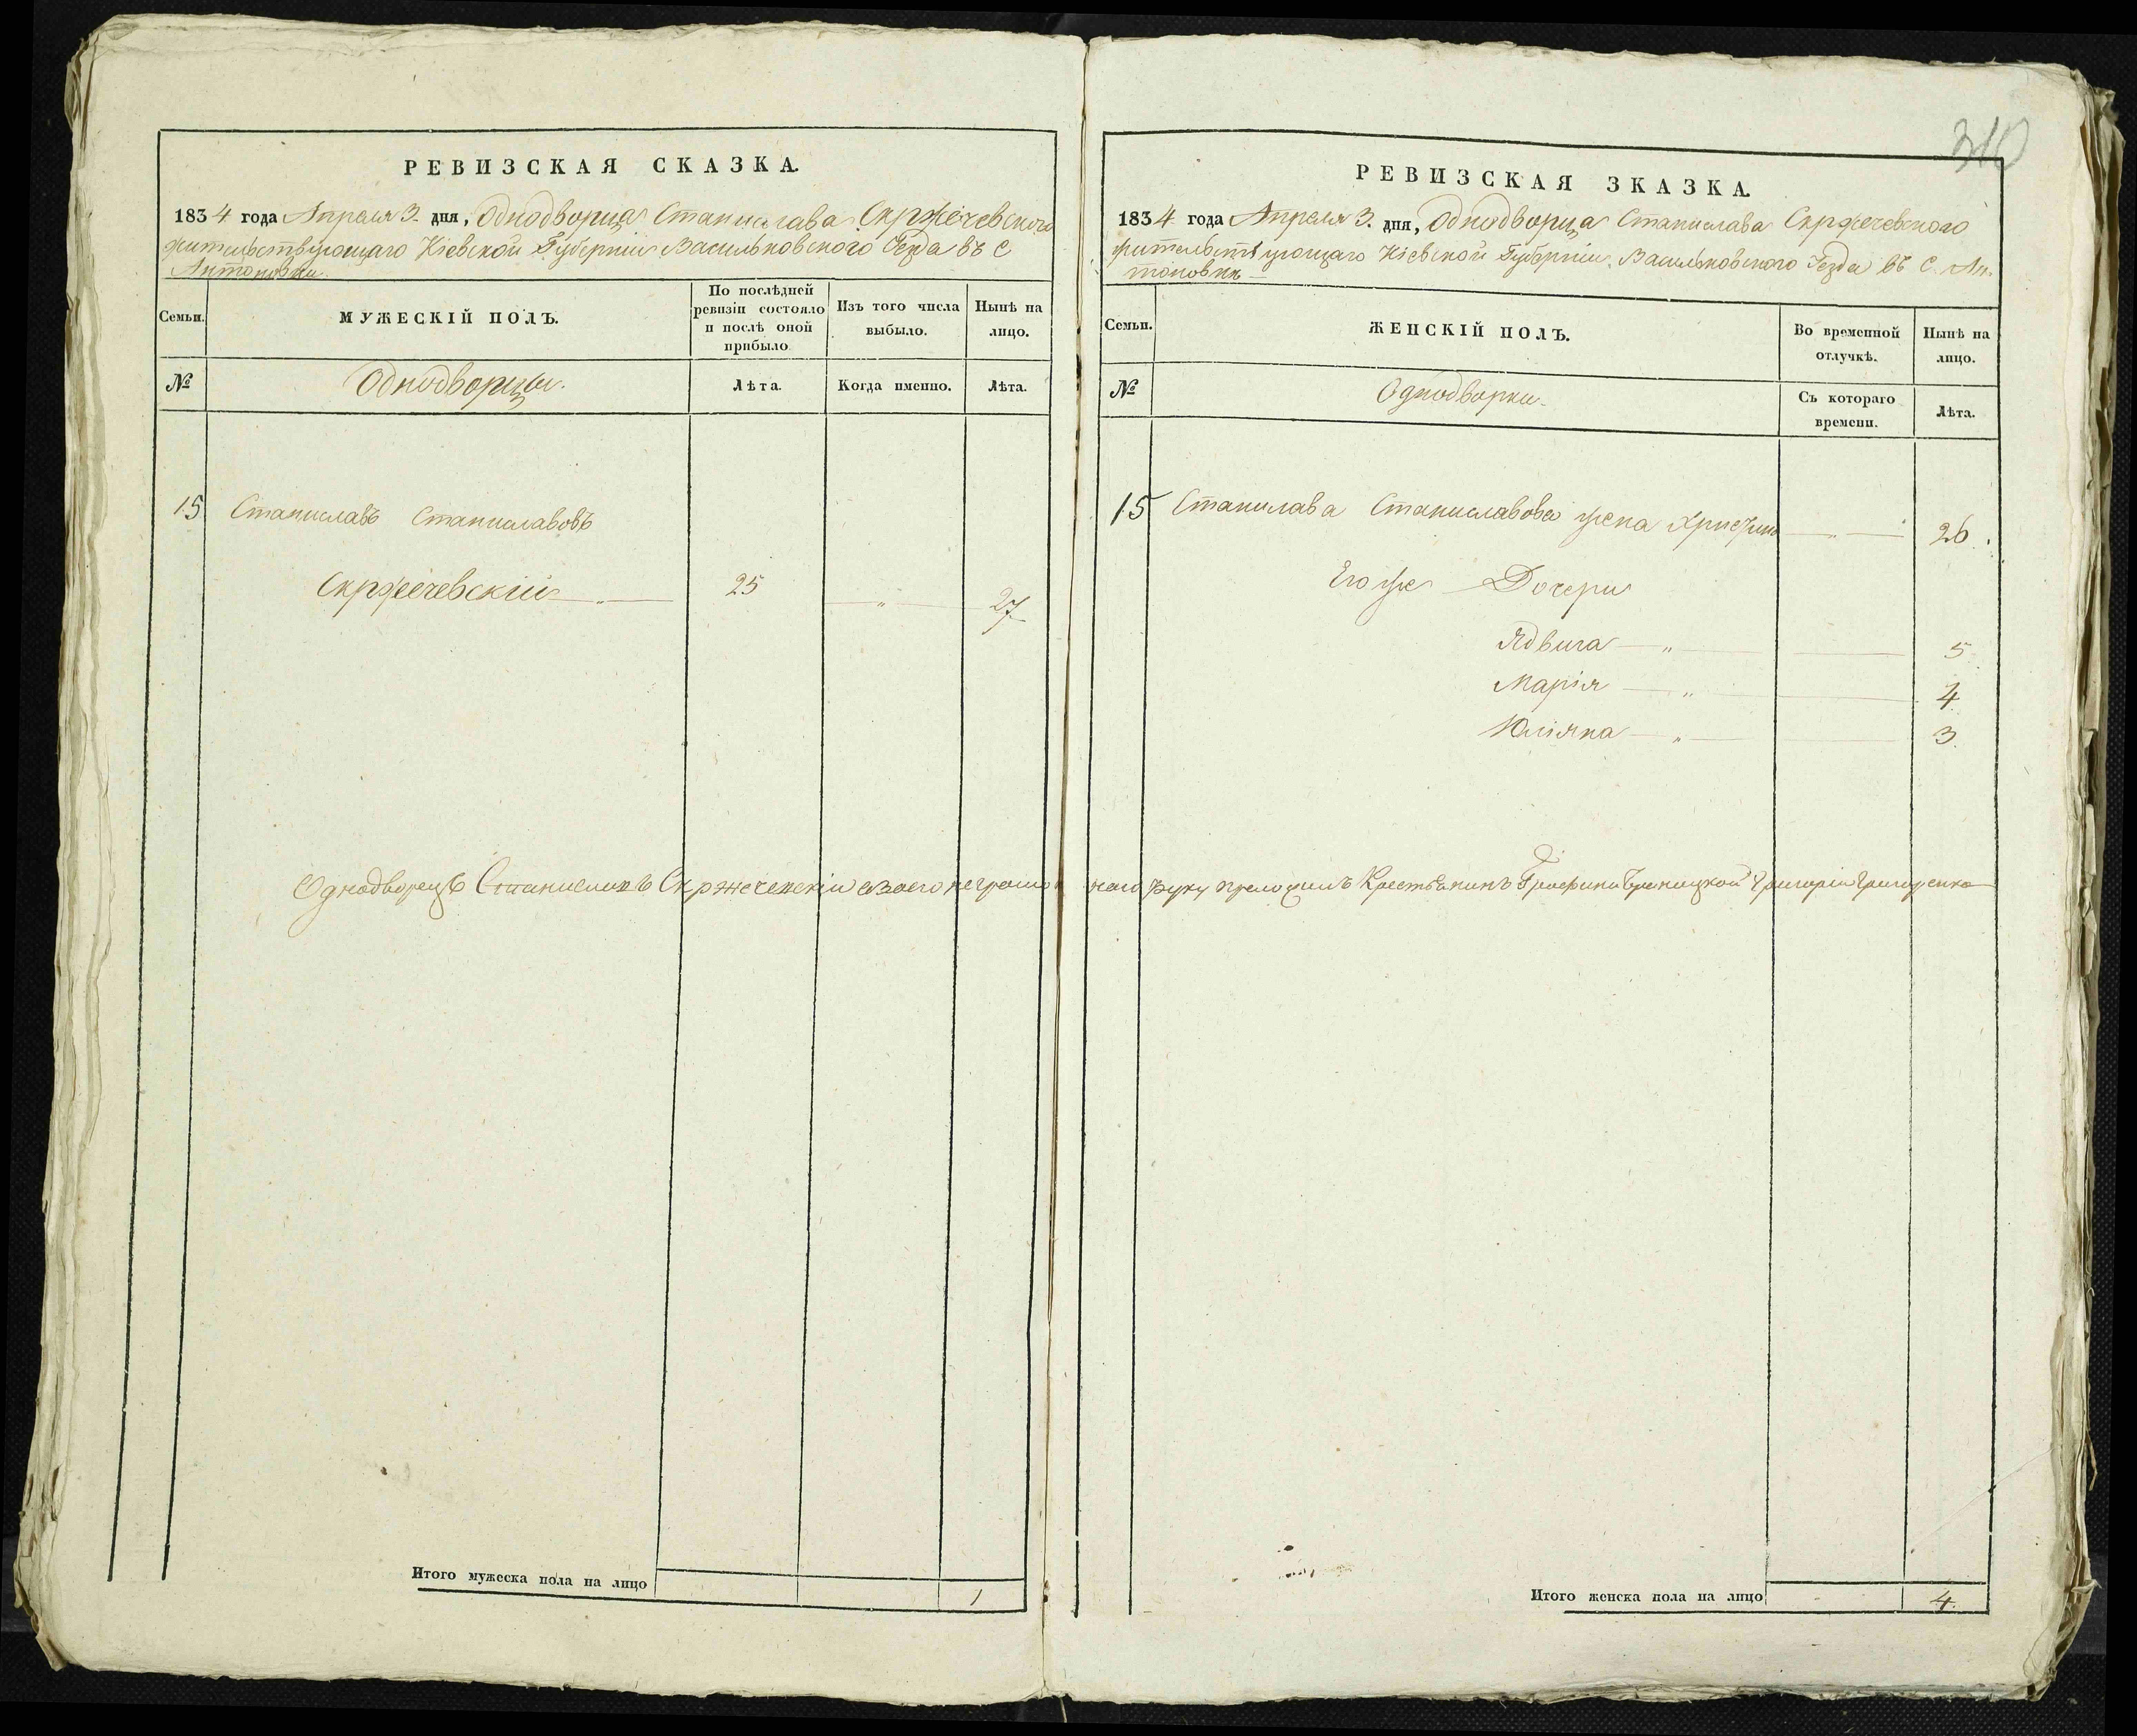 310
РЕВИЗСКАЯ СКАЗКА.
1834 года Апреля 3. дня, Однодворца Станислава Скржечевского
жительствующаго Кіевской Губерніи Васильковского Уезда въ с
Антоновки.
Семьи.
МУЖЕСКІЙ ПОЛЪ.
По послѣдней ревизіи состояло и послѣ оной прибыло
Изъ того числа выбыло.
Нынѣ на лицо.
№
Однодворцы.
Лѣта.
Когда именно.
Лѣта.
15 Станиславъ Станиславовъ
Скржечевскій — „ — 25 — „ — 27
Итого мужеска пола на лицо 1
РЕВИЗСКАЯ ЗКАЗКА.
1834 года Апреля 3. дня, Однодворца Станислава Скржечевского
жительствующаго Кіевской Губерніи Васильковского Уезда въ С. Ан
тоновки —
Семьи.
ЖЕНСКІЙ ПОЛЪ.
Во временной отлучкѣ.
Нынѣ на лицо.
№
Однодворки.
Съ котораго времени.
Лѣта.
15 Станилава Станиславова жена — „ — 26.
Его же Дочери
Ядвига — „ — 5
Марія — „ — 4
Юліяна — „ — 3.
Однодворецъ Станиславъ Скржечевскій а вместо неграмотнаго руку приложилъ Крестьянинъ Графини Браницкой Григорій
Итого женска пола на лицо 4.